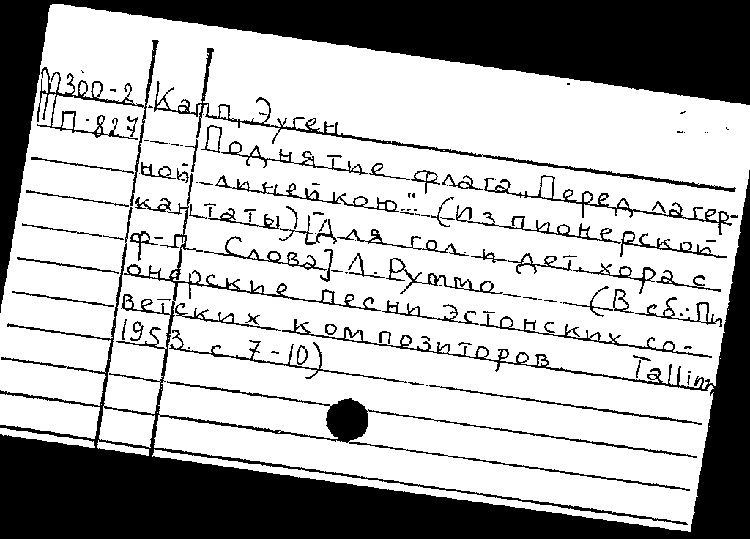 М300-2 Капп, Эуген
П-827
Поднятие флага „Перед лагер-
ной линейкою..." (Из пионерской
кантаты) [Для гол. и дет. хора с
ф-п. Слова] Л. Руммо (В сб.: Пи
онерские песни эстонских со-
ветских композиторов Tallinn
1953. с 7-10)